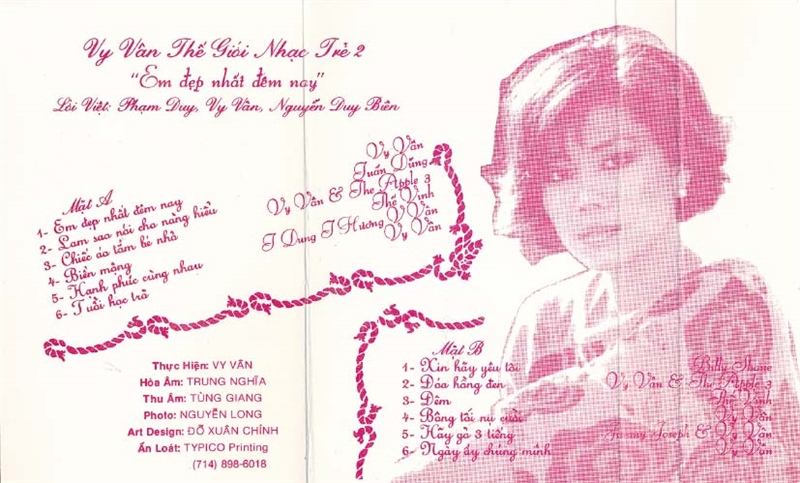 Vy Vân Thế Giới Nhạc Trẻ 2
"Em đẹp nhất đêm nay"
Lời Việt: Phạm Duy, Vy Vân, Nguyễn Duy Biên
Mặt A
1- Em đẹp nhất đêm nay
2- Lam sao nói cho nàng hiểu
3- Chiếc áo tắm bé nhỏ
4- Biển mộng
5- Hạnh phúc cùng nhau
6- Tuổi học trò
Vy Vân
Tuấn Dũng
Vy Vân & The Apple 3
Thế Vinh
T Dung T Hương V Vân
Vy Vân
Mặt B
1- Xin hãy yêu tôi
2- Đóa hồng đen
3- Đêm
4- Bông tối nụ cười
5- Hãy gõ 3 tiếng
6- Ngày ấy chúng mình
Billy Shane
Vy Vân & The Apple 3
Thế Vinh
Vy Vân
Joseph & Vy Vân
Vy Vân
Thực Hiện: VY VÂN
Hòa Âm: TRUNG NGHĨA
Thu Âm: TÙNG GIANG
Photo: NGUYỄN LONG
Art Design: ĐỖ XUÂN CHÍNH
Ấn Loát: TYPICO Printing
(714) 898-6018